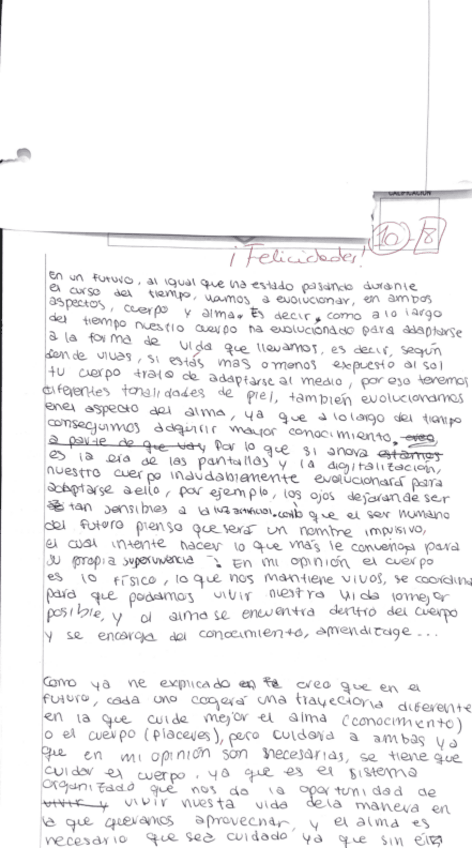 CALIFICACIÓN
10 - 8
¡Felicidades!
en un futuro, al igual que ha estado pasando durante
el curso del tiempo, vamos a evolucionar, en ambos
aspectos, cuerpo y alma. Es decir, como a lo largo
del tiempo nuestro cuerpo ha evolucionado para adaptarse
a la forma de vida que llevamos, es decir, según
donde vivas, si estás mas o menos expuesto al sol
tu cuerpo trata de adaptarse al medio, por eso tenemos
diferentes tonalidades de piel, también evolucionamos
en el aspecto del alma, ya que a lo largo del tiempo
conseguimos adquirir mayor conocimiento. creo
a parte de que voy Por lo que si ahora estamos
es la era de las pantallas y la digitalización,
nuestro cuerpo indudablemente evolucionará para
adaptarse a ello, por ejemplo, los ojos dejarán de ser
tan sensibles a la luz artificial. creo que el ser humano
del futuro pienso que será un hombre impulsivo,
el cual intente hacer lo que más le convenga para
su propia supervivencia. En mi opinión el cuerpo
es lo físico, lo que nos mantiene vivos, se coordina
para que podamos vivir nuestra vida lo mejor
posible, y el alma se encuentra dentro del cuerpo
y se encarga del conocimiento, aprendizage...
Como ya he explicado creo que en el
futuro, cada uno cogerá una trayectoria diferente
en la que cuide mejor el alma (conocimiento)
o el cuerpo (placeres), pero cuidará a ambas ya
que en mi opinión son necesarias, se tiene que
cuidar el cuerpo, ya que es el sistema
organizado que nos da la oportunidad de
vivir y vivir nuesta vida de la manera en
la que queramos aprovechar, y el alma es
necesario que sea cuidado ya que sin